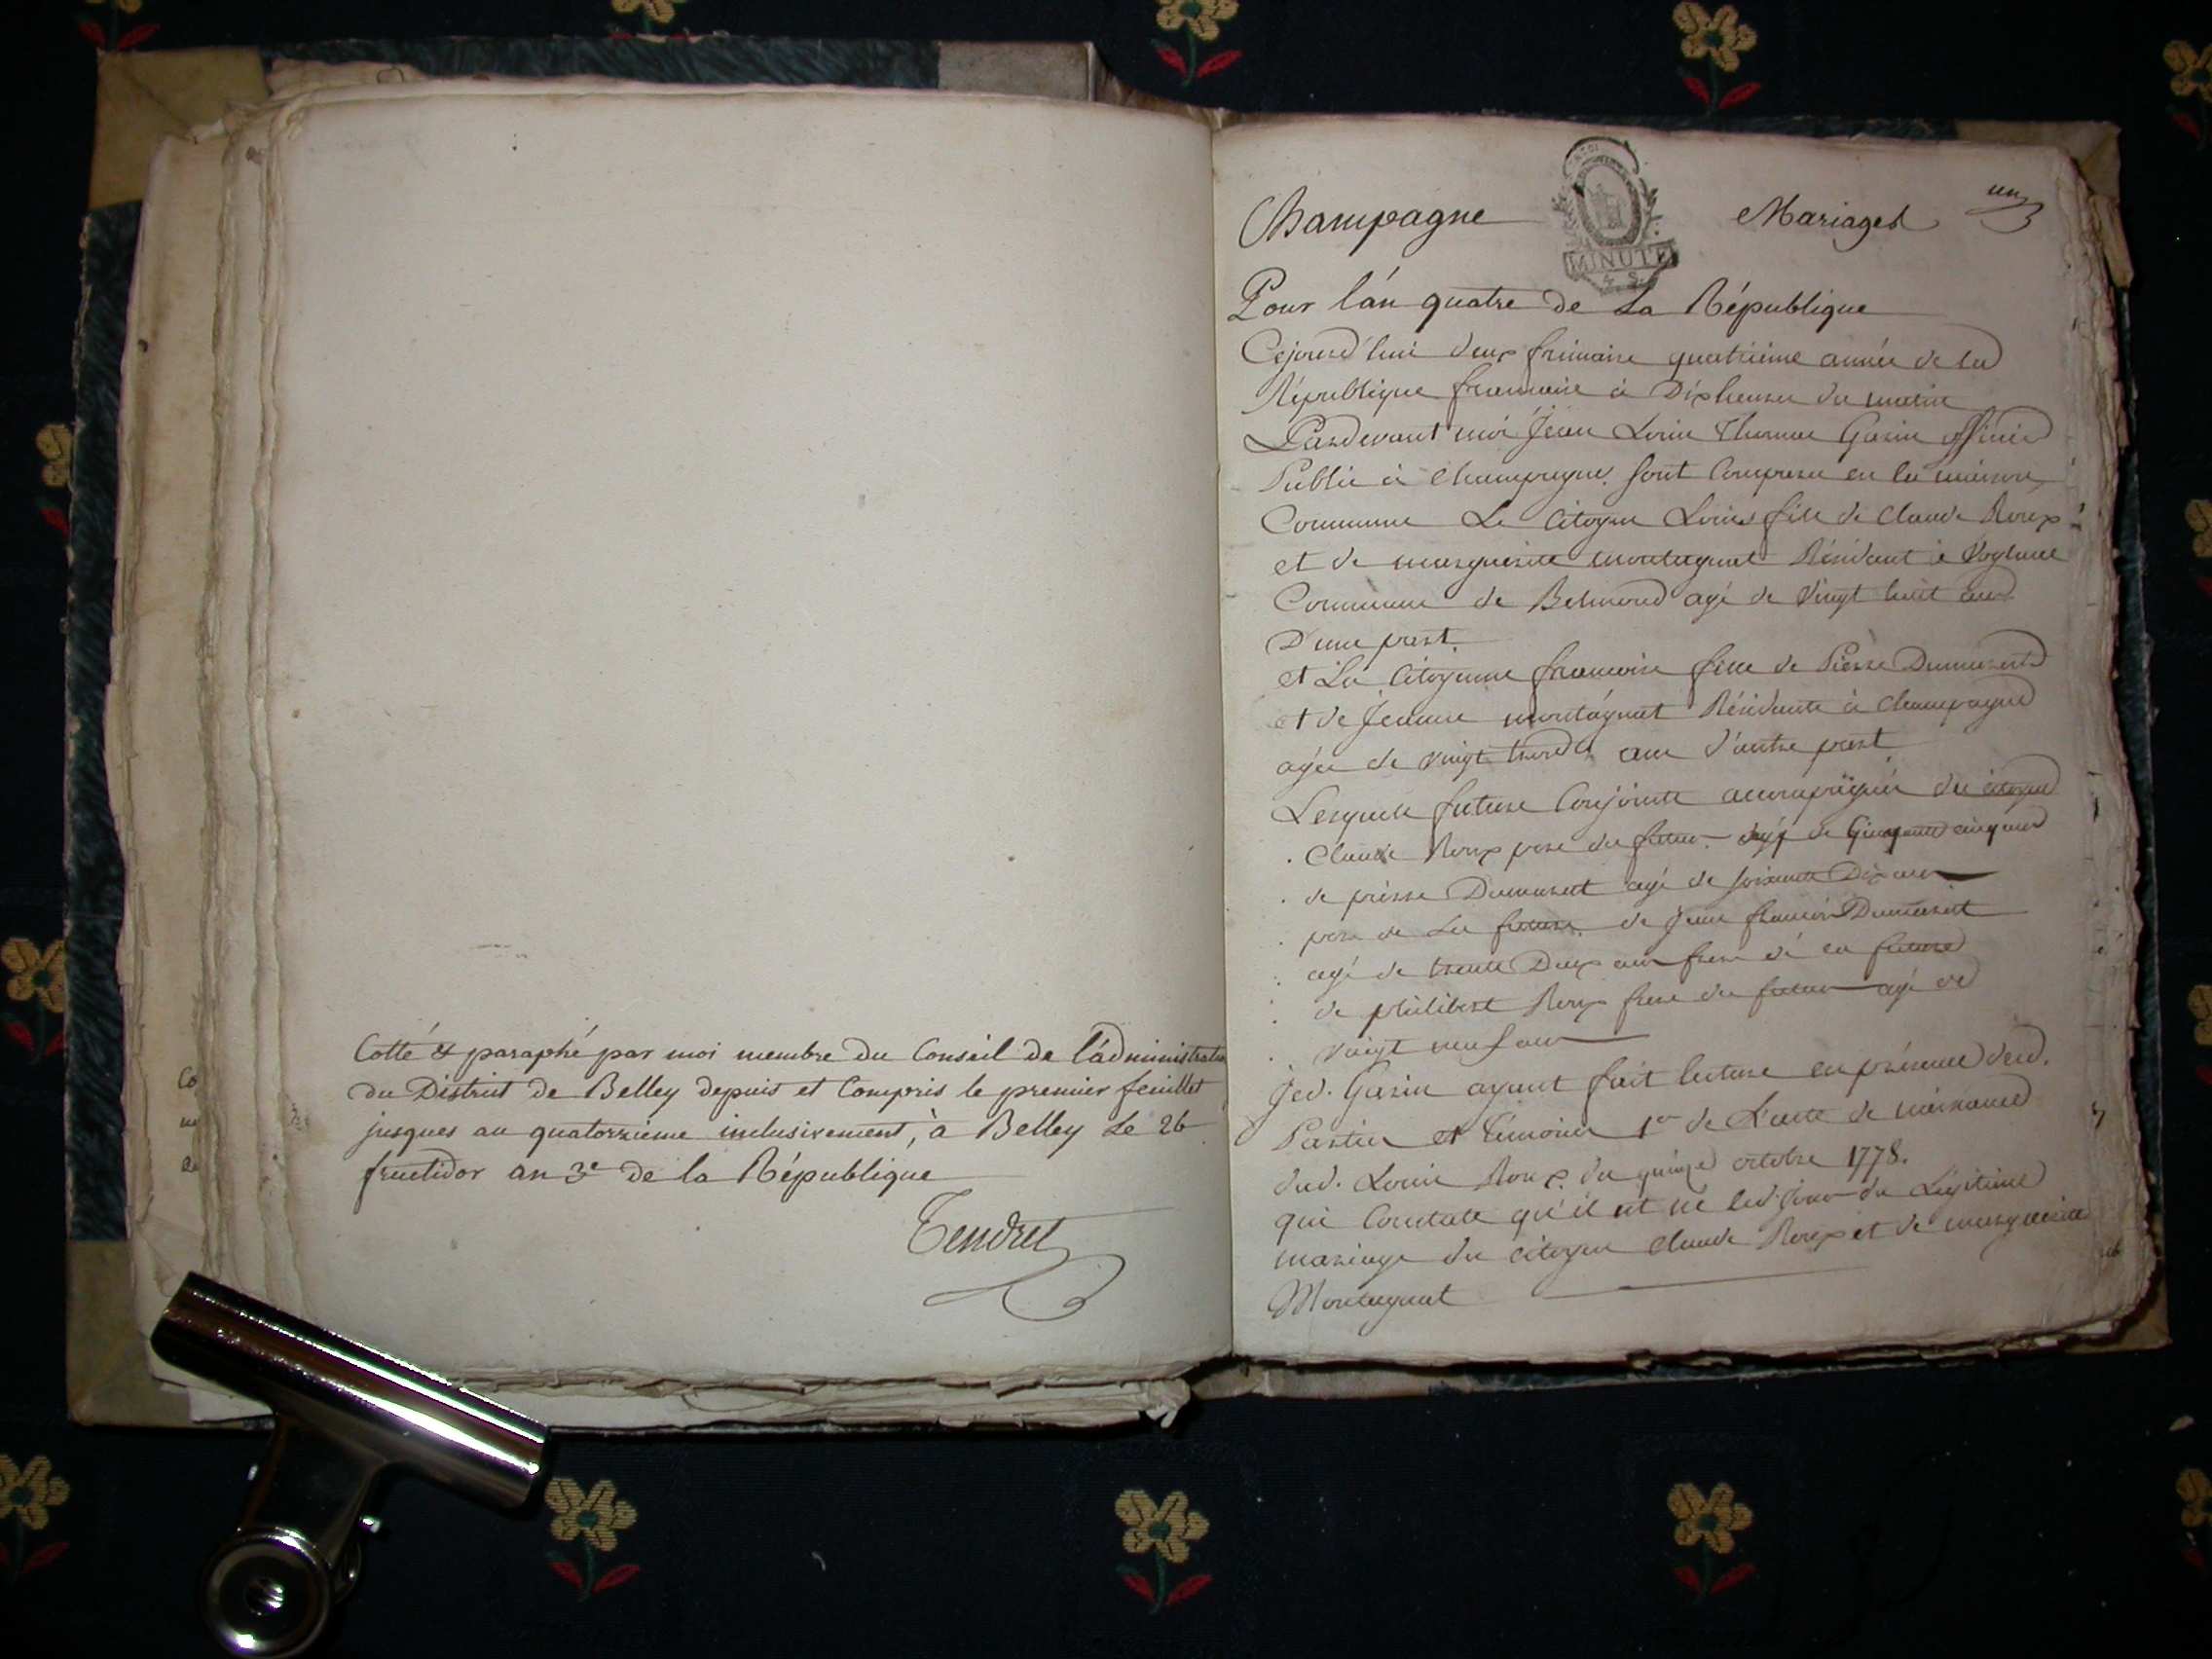 Cotté & paraphé par moi membre du Conseil de l'administration
du District de Belley depuis et Compris le premier feuillet
jusques au quatorzieme inclusivement, à Belley Le 26
fructidor an 3e de la République
Tendret
Champagne
Mariages
un
MINUTE
4 S.
Pour l'an quatre de La République
Cejourd'hui deux frimaire quatrieme année de la
République francaise à Dix heures du matin
Pardevant moi Jean Louis Thomas Garin officier
Public à Champagne sont Comparu en la maison
Commune Le Citoyen Louis fils de Claude Roux
et de marguerite montagnat Résidant à
Commune de Belmond agé de Vingt huit ans
D'une part.
et La Citoyenne francoise fille de Pierre Dumarest
et de Jeanne montagnat Résidante à Champagne
agée de vingt ans d'autre part
Lesquels future Conjoints accompagnés du citoyen
Claude Roux pere du futur agé de Cinquante cinq ans
de pierre Dumarest agé de soixante Dix ans
pere de La future de Jean francois Dumarest
agé de trente Deux ans frere de la future
de philibert Roux frere du futur agé de
vingt neuf ans
Jed. Garin ayant fait lecture en présence desd.
Parties et Témoins 1er de L'acte de naissance
dud. Louis Roux du quinze octobre 1778.
qui Constate qu'il est né led. jour du Légitime
mariage du citoyen Claude Roux et de marguerite
Montagnat